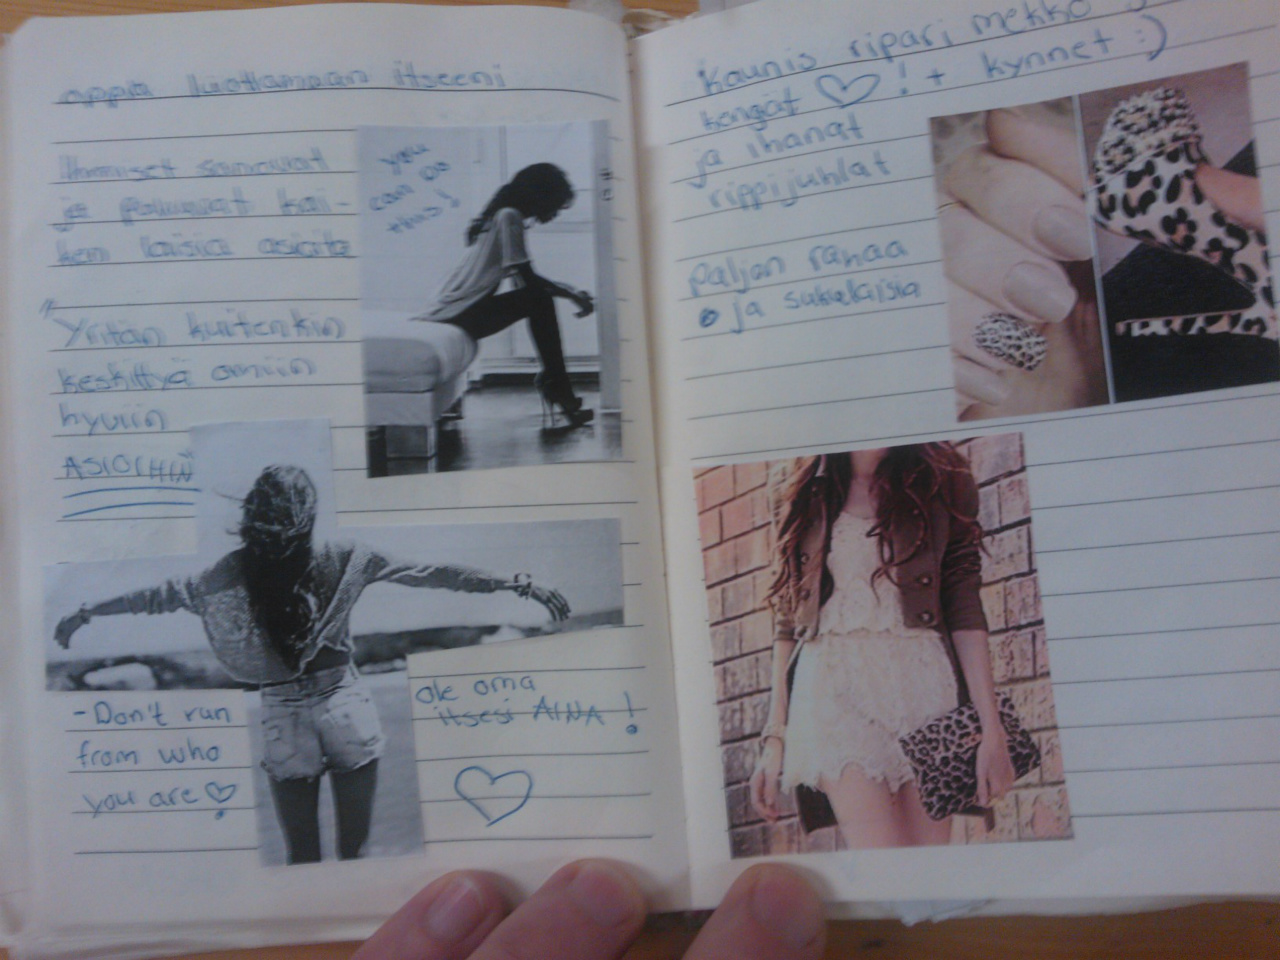 oppia luottamaan itseeni
Ihmiset sanovat
ja puhuvat kai-
ken laisia asioita
Yritän kuitenkin
keskittyä omiin
hyviin
ASIOIHIN
you
can do
this!
- Don't run
from who
you are ♡
ole oma
itsesi AINA !
♡
Kaunis ripari mekko
kengät ♡! + kynnet :)
ja ihanat
rippijuhlat
paljon rahaa
ja sukulaisia